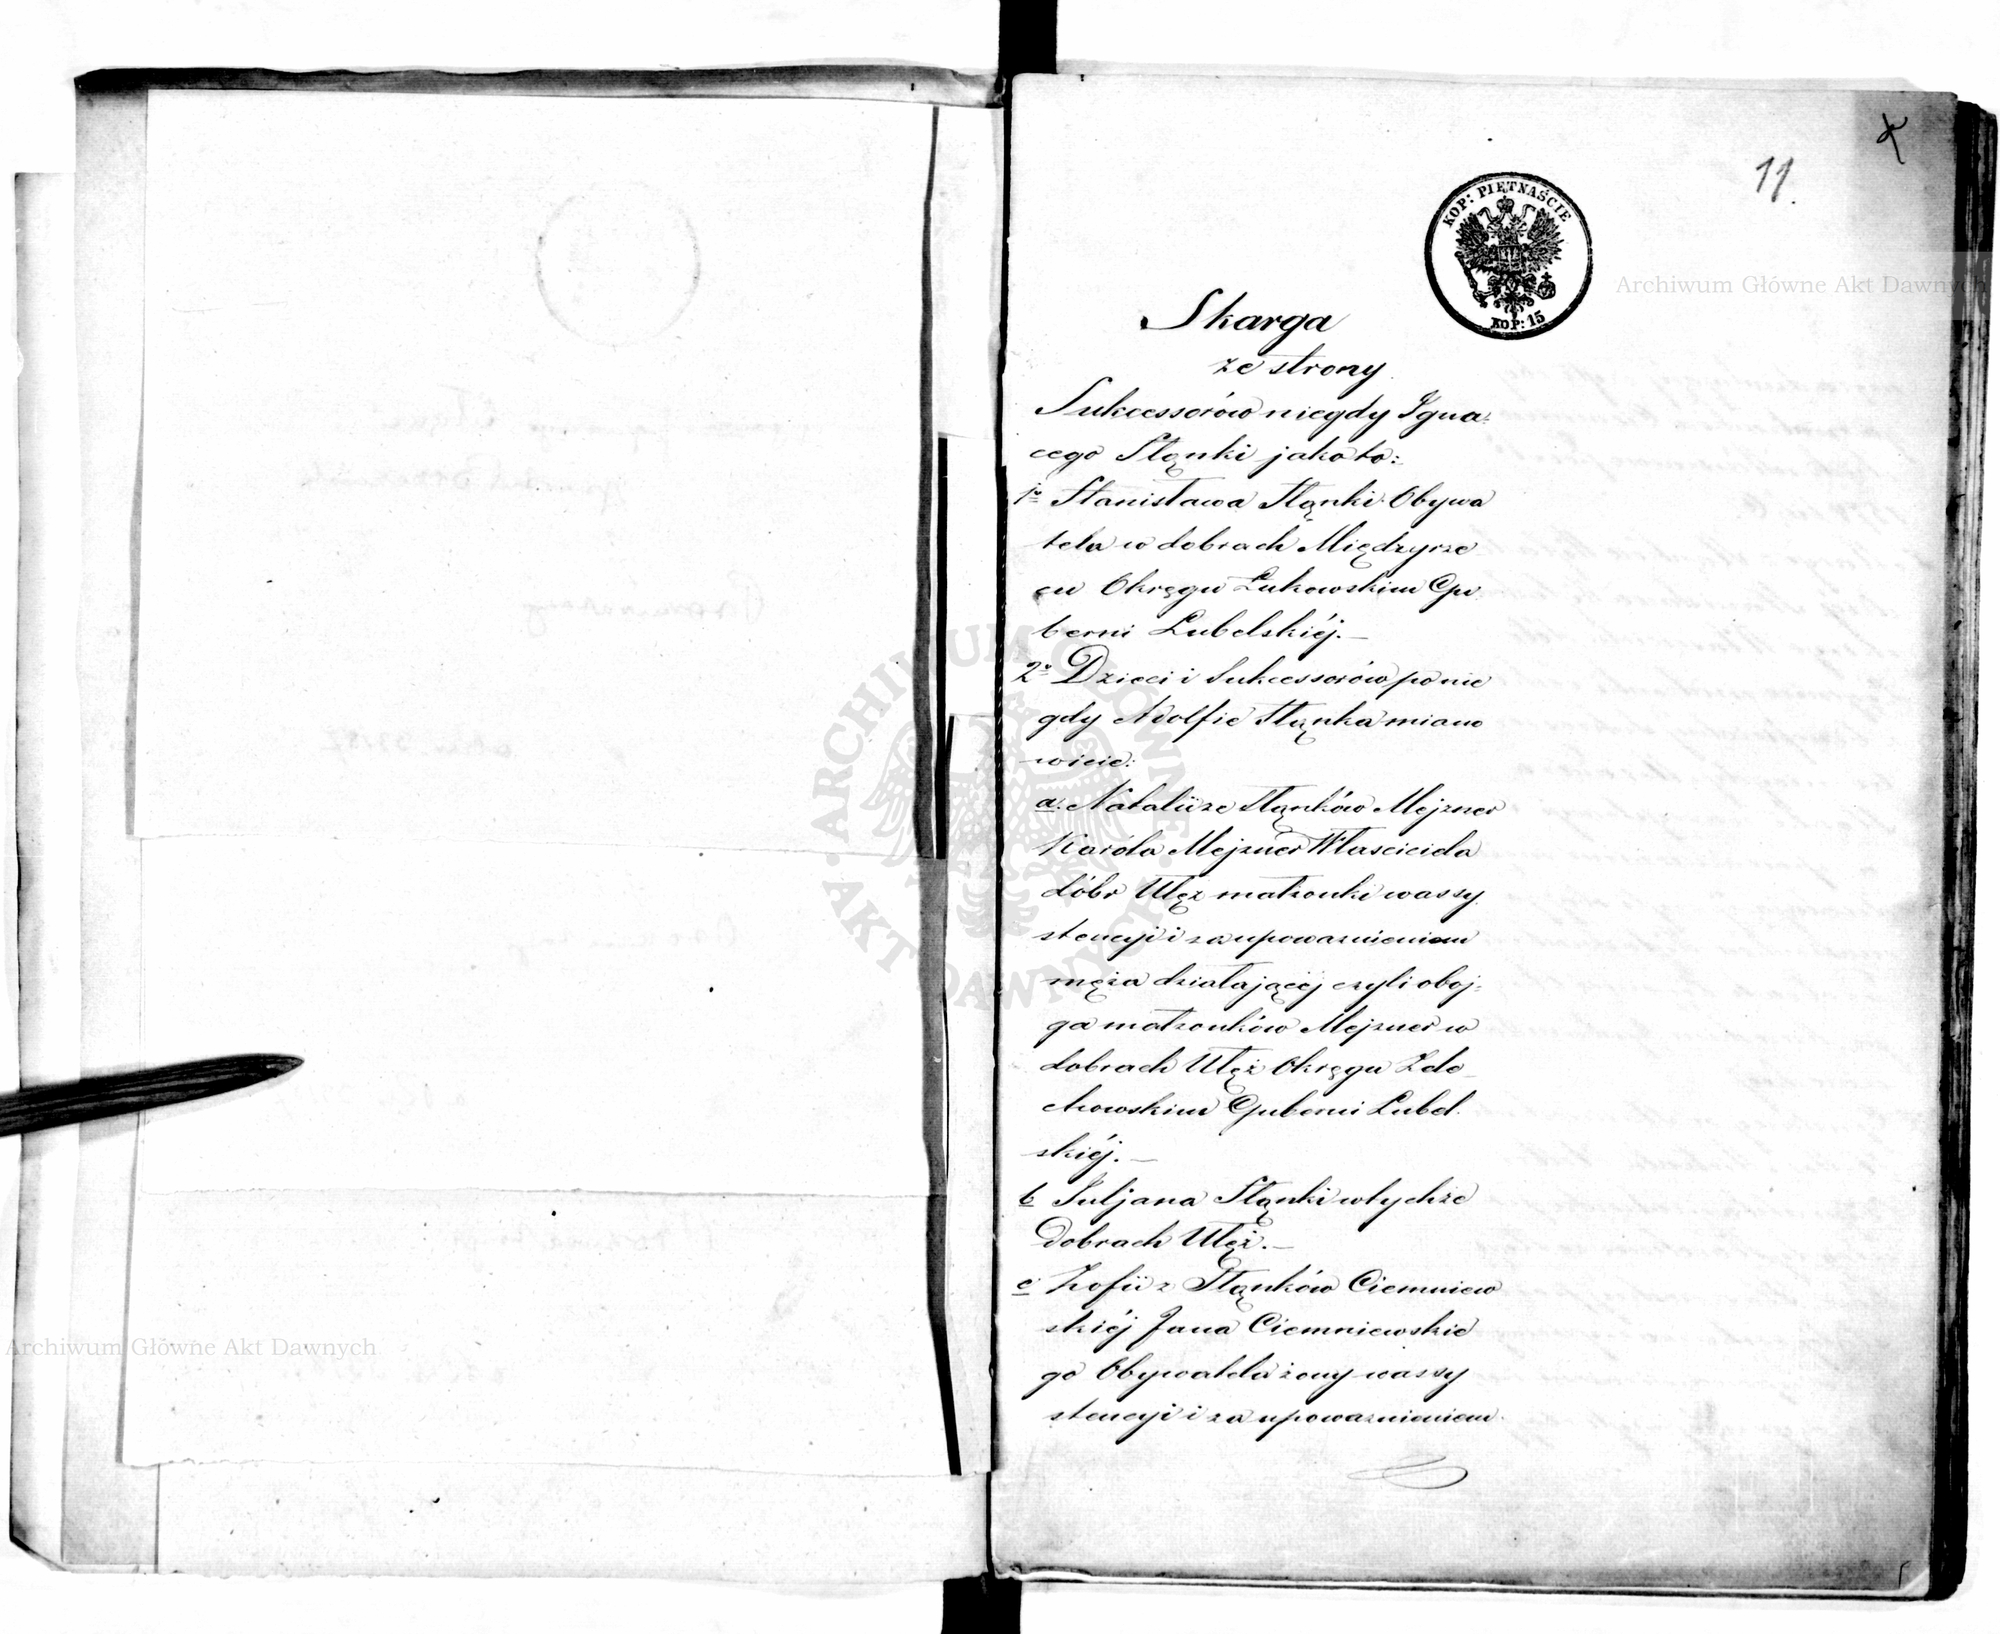 11.
KOP: PIĘTNAŚCIE
KOP: 15
Skarga
ze strony
Sukcessorów niegdy Igna=
cego Stąnki jako to:
1o Stanisława Stąnki Obywa
tela w dobrach Międzyrze
cu Okręgu Łukowskim Gu
berni Lubelskiéj.—
2o Dzieci i Sukcessorów po nie
gdy Adolfie Stąnka miano
wicie:
a. Natalii ze Stąnków Mejzner
Karóla Mejzner Własciciela
dóbr Ułęż małżonki w assy
stencyi i za upoważnieniem
męża działającéj czyli oboj=
ga małżonków Mejzner w
dobrach Ułęż Okręgu Żele
chowskim Gubernii Lubel
skiéj.—
b Juljana Stąnki w tychże
Dobrach Ułęż.—
c Zofii z Stąnków Ciemniew
skiéj Jana Ciemniewskie
go Obywatela żony w assy
stencyi i za upoważnieniem
Archiwum Główne Akt Dawnych
Archiwum Główne Akt Dawnych
ARCHIWUM GŁÓWNE
AKT DAWNYCH